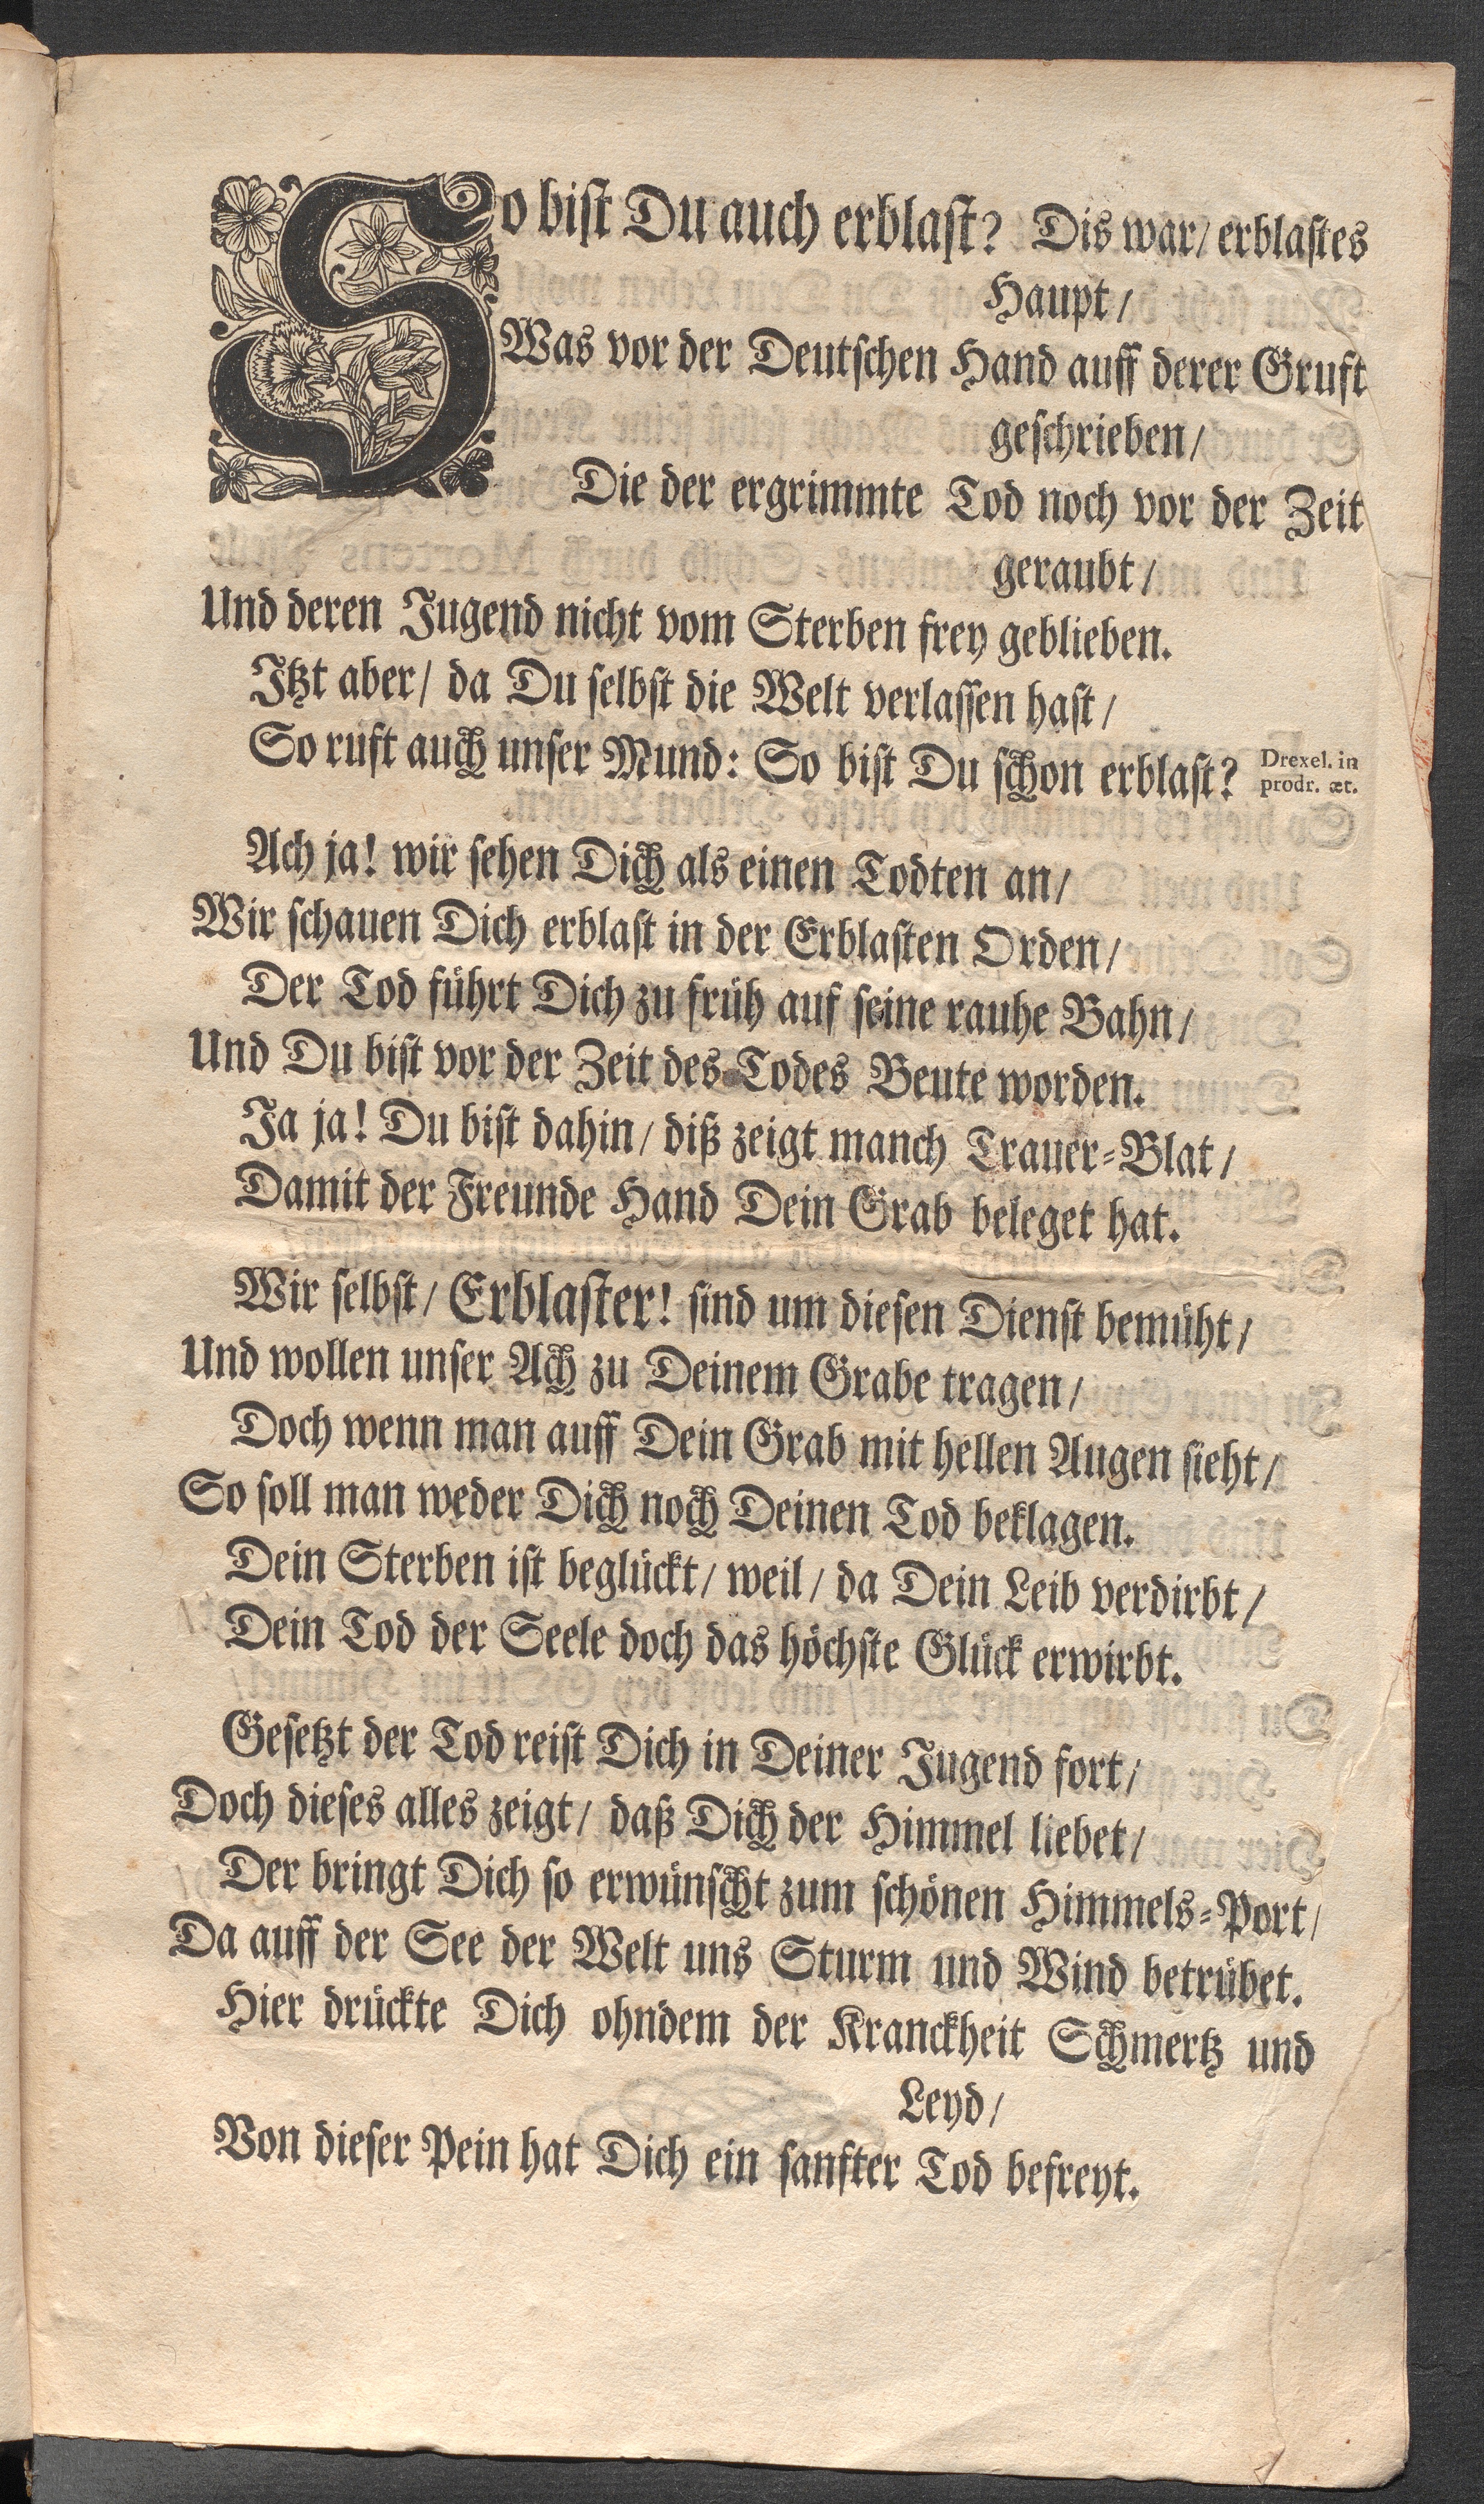 So bist Du auch erblast? Dis war/ erblastes
Haupt/
Was vor der Deutschen Hand auff derer Gruft
geschrieben/
Die der ergrimmte Tod noch vor der Zeit
geraubt/
Und deren Jugend nicht vom Sterben frey geblieben.
Itzt aber/ da Du selbst die Welt verlassen hast/
So ruft auch unser Mund: So bist Du schon erblast?
Drexel. in
prodr. æt.
Ach ja! wir sehen Dich als einen Todten an/
Wir schauen Dich erblast in der Erblasten Orden/
Der Tod führt Dich zu früh auf seine rauhe Bahn/
Und Du bist vor der Zeit des Todes Beute worden.
Ja ja! Du bist dahin/ diß zeigt manch Trauer-Blat/
Damit der Freunde Hand Dein Grab beleget hat.
Wir selbst/ Erblaster! sind um diesen Dienst bemüht/
Und wollen unser Ach zu Deinem Grabe tragen/
Doch wenn man auff Dein Grab mit hellen Augen sieht/
So soll man weder Dich noch Deinen Tod beklagen.
Dein Sterben ist beglückt/ weil/ da Dein Leib verdirbt/
Dein Tod der Seele doch das höchste Glück erwirbt.
Gesetzt der Tod reist Dich in Deiner Jugend fort/
Doch dieses alles zeigt/ daß Dich der Himmel liebet/
Der bringt Dich so erwünscht zum schönen Himmels-Port/
Da auff der See der Welt uns Sturm und Wind betrübet.
Hier drückte Dich ohndem der Kranckheit Schmertz und
Leyd/
Von dieser Pein hat Dich ein sanfter Tod befreyt.